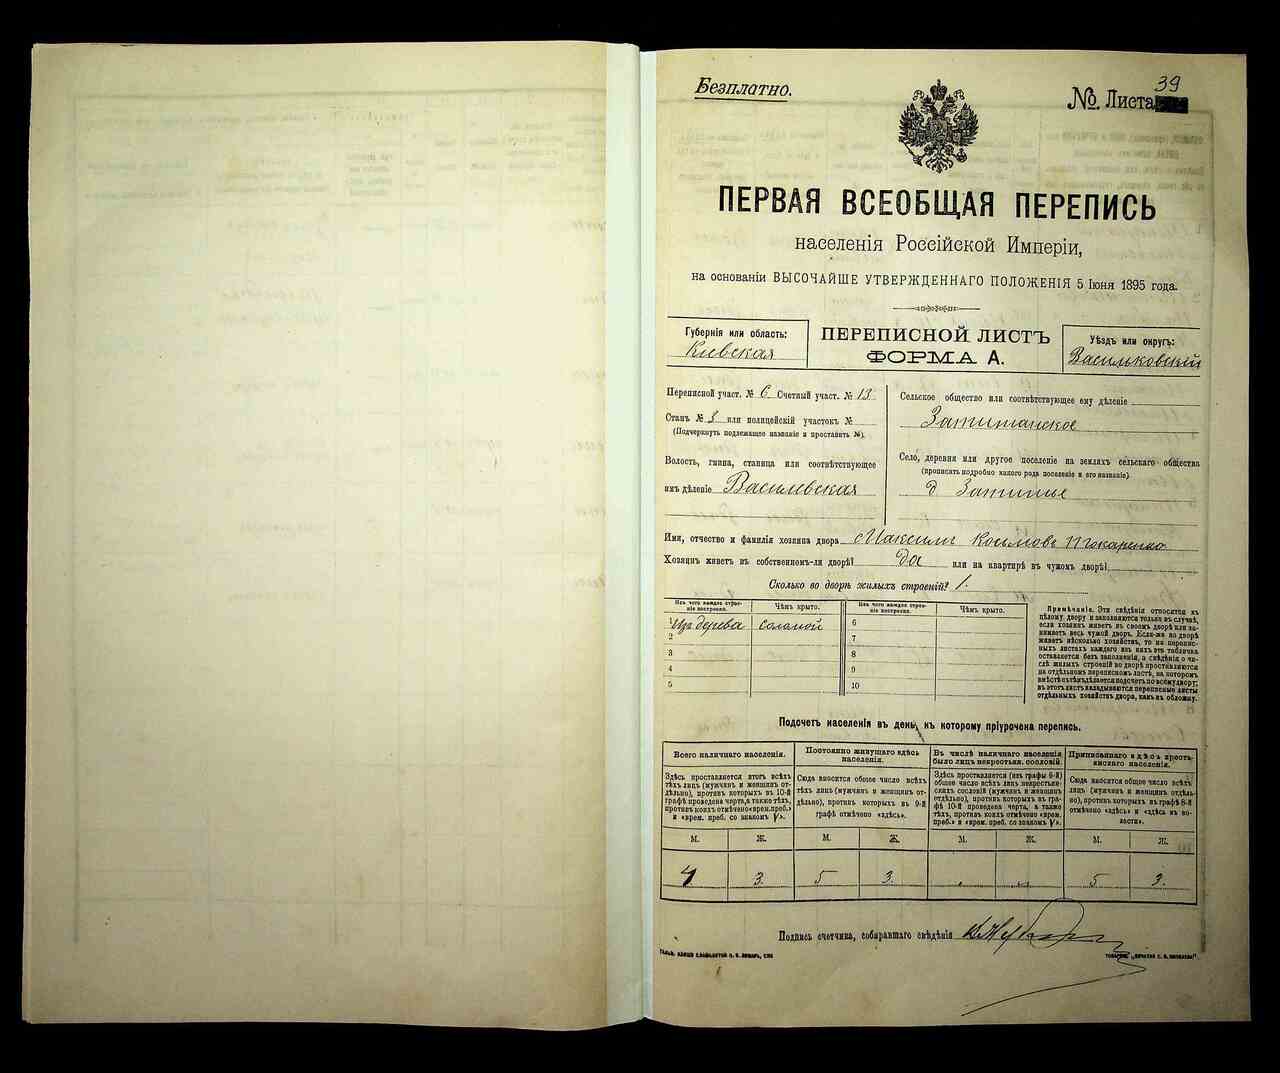 Безплатно.
39
№. Листа
ПЕРВАЯ ВСЕОБЩАЯ ПЕРЕПИСЬ
населенія Россійской Имперіи,
на основаніи ВЫСОЧАЙШЕ УТВЕРЖДЕННАГО ПОЛОЖЕНІЯ 5 Іюня 1895 года.
Губернія или область:
Кіевская
ПЕРЕПИСНОЙ ЛИСТЪ
ФОРМА А.
Уѣздъ или округъ:
Васильковскій
Переписной участ. № 6 Счетный участ. № 13
Станъ № 3 или полицейскій участокъ №
(Подчеркнуть подлежащее названіе и проставить №).
Волость, гмина, станица или соотвѣтствующее
имъ дѣленіе Василевская
Сельское общество или соотвѣтствующее ему дѣленіе
Затишанское
Село, деревня или другое поселеніе на земляхъ сельскаго общества
(прописать подробно какого рода поселеніе и его названіе).
д Затишье
Имя, отчество и фамилія хозяина двора Максимъ Косьмовъ Токаренко
Хозяинъ живетъ въ собственномъ-ли дворѣ? Да или на квартирѣ въ чужомъ дворѣ?
Сколько во дворѣ жилыхъ строеній? 1.
Изъ чего каждое строеніе построено.
Чѣмъ крыто.
Изъ чего каждое строеніе построено.
Чѣмъ крыто.
1 Изъ дерева соломой
2
3
4
5
6
7
8
9
10
Примѣчаніе. Эти свѣдѣнія относятся къ
цѣлому двору и заполняются только въ случаѣ,
если хозяинъ живетъ въ своемъ дворѣ или занимаетъ
весь чужой дворъ. Если-же во дворѣ
живетъ нѣсколько хозяйствъ, то на переписныхъ
листахъ каждаго изъ нихъ эта табличка
оставляется безъ заполненія, а свѣдѣнія о числѣ
жилыхъ строеній во дворѣ проставляются
на отдѣльномъ переписномъ листѣ, на которомъ
вмѣстѣ съ тѣмъ дѣлается подсчетъ по всему двору;
въ этотъ листъ вкладываются переписные листы
отдѣльныхъ хозяйствъ двора, какъ въ обложку.
Подсчетъ населенія въ день, къ которому пріурочена перепись.
Всего наличнаго населенія.
Здѣсь проставляется итогъ всѣхъ
тѣхъ лицъ (мужчинъ и женщинъ отдѣльно),
противъ которыхъ въ 10-й
графѣ проведена черта, а также тѣхъ,
противъ коихъ отмѣчено «врем. преб.»
и «врем. преб. со знакомъ V».
Постоянно живущаго здѣсь
населенія.
Сюда вносится общее число всѣхъ
тѣхъ лицъ (мужчинъ и женщинъ отдѣльно),
противъ которыхъ въ 9-й
графѣ отмѣчено «здѣсь».
Въ числѣ наличнаго населенія
было лицъ некрестьян. сословій.
Здѣсь проставляется (изъ графы 6-й)
общее число всѣхъ лицъ некрестьянскихъ
сословій (мужчинъ и женщинъ
отдѣльно), противъ которыхъ въ графѣ
10-й проведена черта, а также
тѣхъ, противъ коихъ отмѣчено «врем.
преб.» и «врем. преб. со знакомъ V».
Приписаннаго здѣсь крестьянскаго
населенія.
Сюда вносится общее число всѣхъ
лицъ (мужчинъ и женщинъ отдѣльно),
противъ которыхъ въ графѣ 8-й
отмѣчено «здѣсь» и «здѣсь въ волости».
М. Ж. М. Ж. М. Ж. М. Ж.
4 3. 5 3. 5 3.
Подпись счетчика, собиравшаго свѣдѣнія